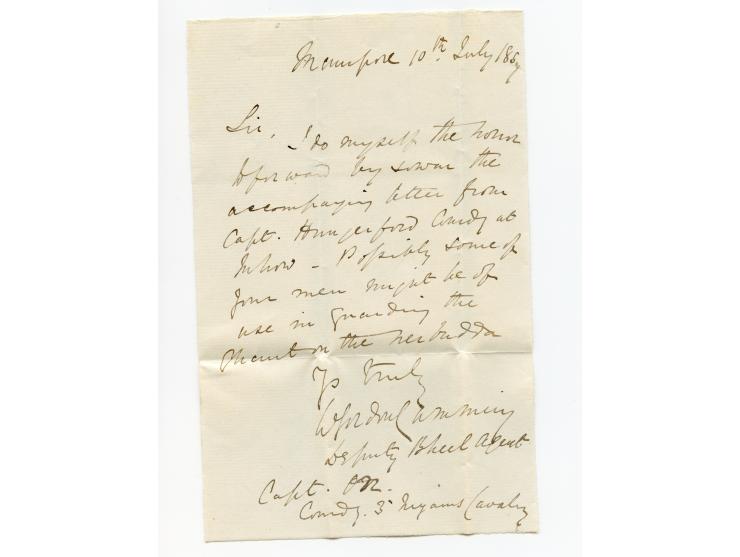 Maunpore 10th July 1857
Sir,
I do myself the honor
to forward by sowar the
accompaying letter from
Capt. Hungerford Comdg at
Mhow - Possibly some of
your men might be of
use in guarding the
on the Nerbudda
Yrs truly
Gordon Cumming
Deputy Bheel Agent
Capt. Orr.
Comdg. 3d Nizams Cavalry